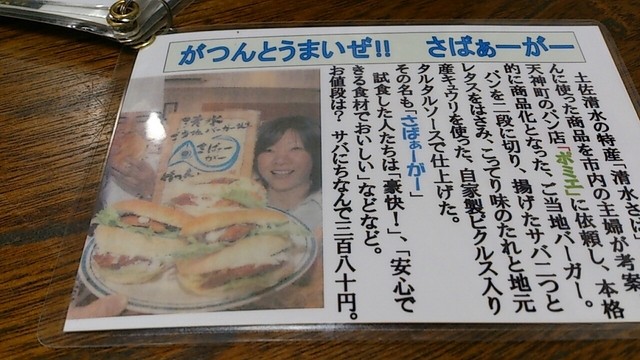 がつんとうまいぜ!! さばぁーがー
土佐清水の特産「清水さば」
んに使った商品を市内の主婦が考案
天神町のパン店「ポミエ」に依頼し、本格
的に商品化となった、ご当地バーガー。
パンを二段に切り、揚げたサバ二つと
レタスをはさみ、こってり味のたれと地元
産キュウリを使った、自家製ピクルス入り
タルタルソースで仕上げた。
その名も「さばぁーがー」
試食した人たちは「豪快！」、「安心で
きる食材でおいしい」などなど。
お値段は？ サバにちなんで三百八十円。
清水
さばぁー
がー